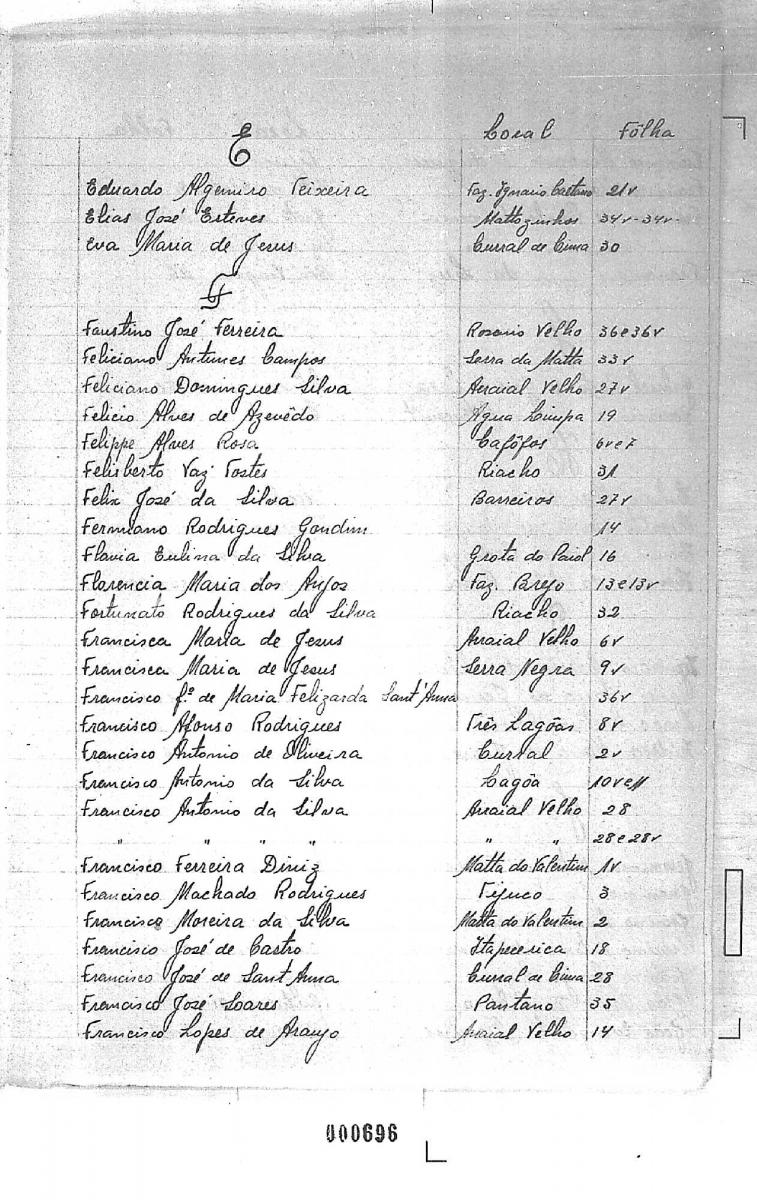 E Local Fôlha
Eduardo Algemiro Teixeira Faz. Ignacio Caetano 21v
Elias José Esteves Mattozinhos 34v-34v-
Eva Maria de Jesus Curral de Cima 30
F
Faustino José Ferreira Rosario Velho 36e36v
Feliciano Antunes Campos Serra da Matta 33v
Feliciano Domingues Silva Arraial Velho 27v
Felicio Alves de Azevêdo Agua Limpa 19
Felippe Alves Rosa Cafôfos 6ve7
Felisberto Vaz Tostes Riacho 31
Felix José da Silva Barreiros 27v
Fermiano Rodrigues Gondim 14
Flavia Eulina da Silva Grota do Paiol 16
Florencia Maria dos Anjos Faz. Parejo 13e13v
Fortunato Rodrigues da Silva Riacho 32
Francisca Maria de Jesus Arraial Velho 6v
Francisca Maria de Jesus Serra Negra 9v
Francisco fº. de Maria Felizarda Sant'Anna 36v
Francisco Afonso Rodrigues Três Lagôas 8v
Francisco Antonio de Oliveira Curral 2v
Francisco Antonio da Silva Lagôa 10ve11
Francisco Antonio da Silva Arraial Velho 28
" " " " " " 28e28v
Francisco Ferreira Diniz Matta do Valentim 1v
Francisco Machado Rodrigues Tijuco 3
Francisco Moreira da Silva Matta do Valentim 2
Francisco José de Castro Itapecerica 18
Francisco José de Sant'Anna Curral de Cima 28
Francisco José Soares Pantano 35
Francisco Lopes de Araujo Arraial Velho 14
000696